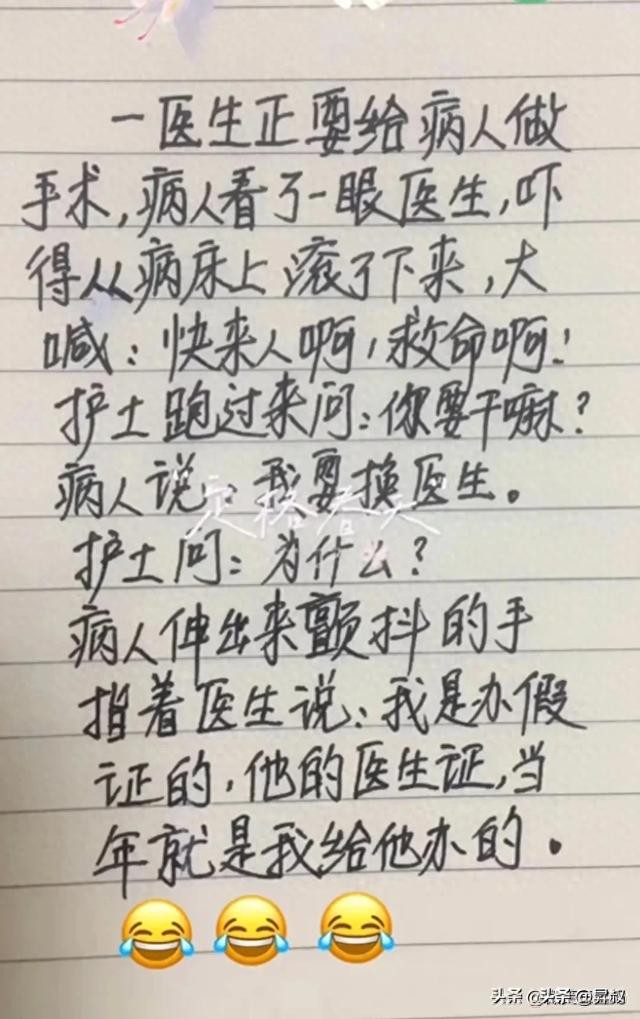 一医生正要给病人做
手术,病人看了一眼医生,吓
得从病床上滚了下来,大
喊:快来人啊,救命啊!
护士跑过来问:你要干嘛?
病人说:我要换医生。
护士问:为什么?
病人伸出来颤抖的手
指着医生说:我是办假
证的,他的医生证,当
年就是我给他办的。
头条 @昇叔